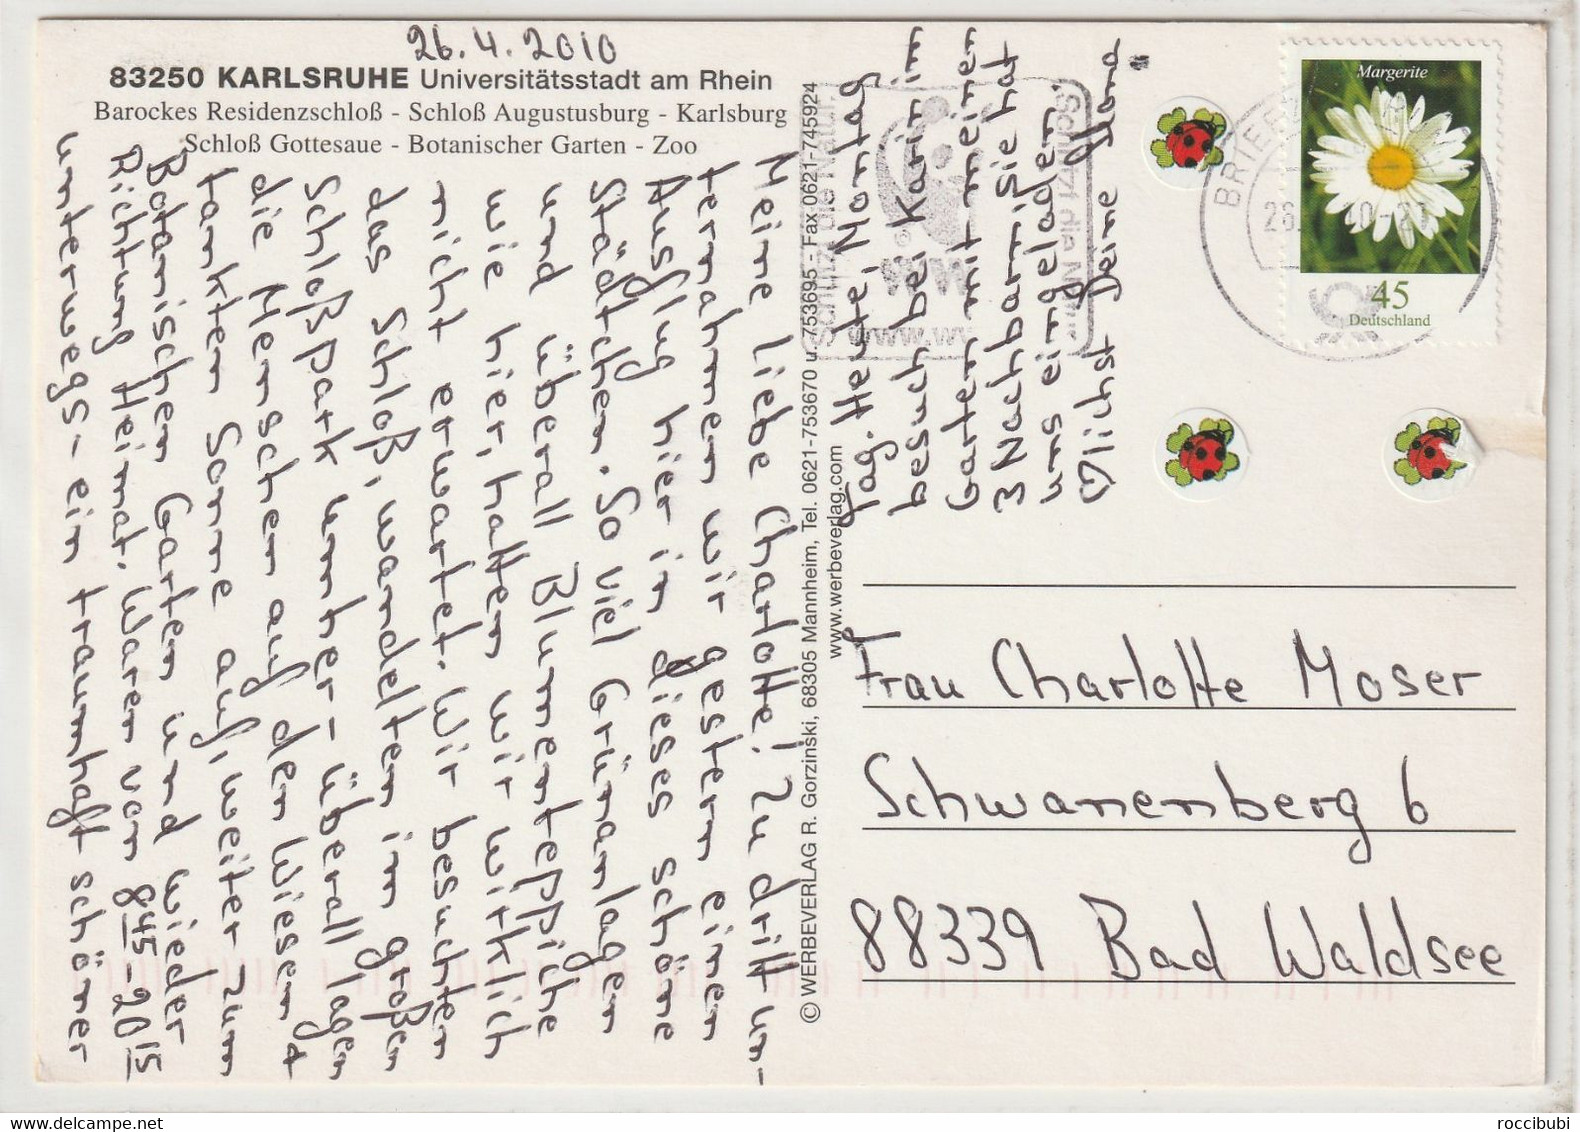 26.4.2010
83250 KARLSRUHE Universitätsstadt am Rhein
Barockes Residenzschloß - Schloß Augustusburg - Karlsburg
Schloß Gottesaue - Botanischer Garten - Zoo
Meine liebe Charlotte! Zu dritt un-
ternahmen wir gestern einen
Ausflug hier in dieses schöne
Städtchen. So viel Grünanlagen
und überall Blumenteppiche
wie hier, hatten wir wirklich
nicht erwartet. Wir besuchten
das Schloß, wandelten im großen
Schloßpark umher - überall lagen
die Menschen auf den Wiesen +
tankten Sonne auf, weiter zum
Botanischen Garten und wieder
Richtung Heimat. Waren von 8 45 - 20 15
unterwegs - ein traumhaft schöner
Tag. Heute, Montag
besuch bei Karin im
Garten mit meinen
3 Nachbarn, Sie hat
uns eingeladen.
♡lichst Deine Mona
© WERBEVERLAG R. Gorzinski, 68305 Mannheim, Tel. 0621-753670 u. 753695 - Fax 0621-745924
www.werbeverlag.com
Schützt die Natur
www.w
BRIEF
Margerite
45
Deutschland
Frau Charlotte Moser
Schwanenberg 6
88339 Bad Waldsee
roccibubi